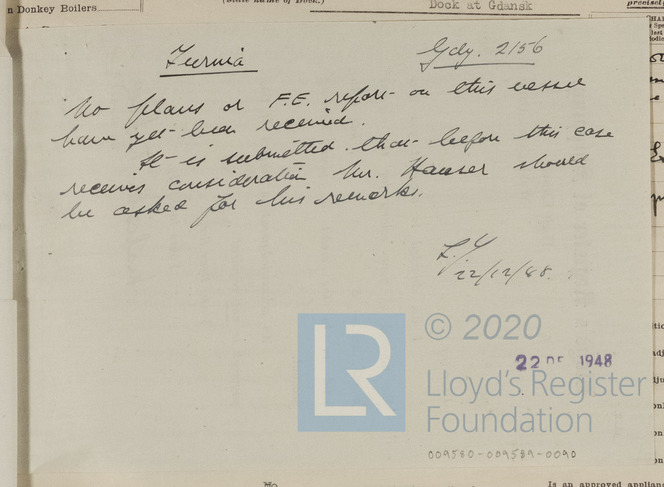 n Donkey Boilers
Dock at Gdansk
Gdy. 2156
No plans or F.E. report on this vessel
have yet been received.
It is submitted that before this case
receives consideration Mr. Hauser should
be asked for his remarks.
22/12/48.
LR
© 2020
22 DE 1948
Lloyd's Register
Foundation
009580-009589-0090
Is an approved applianc